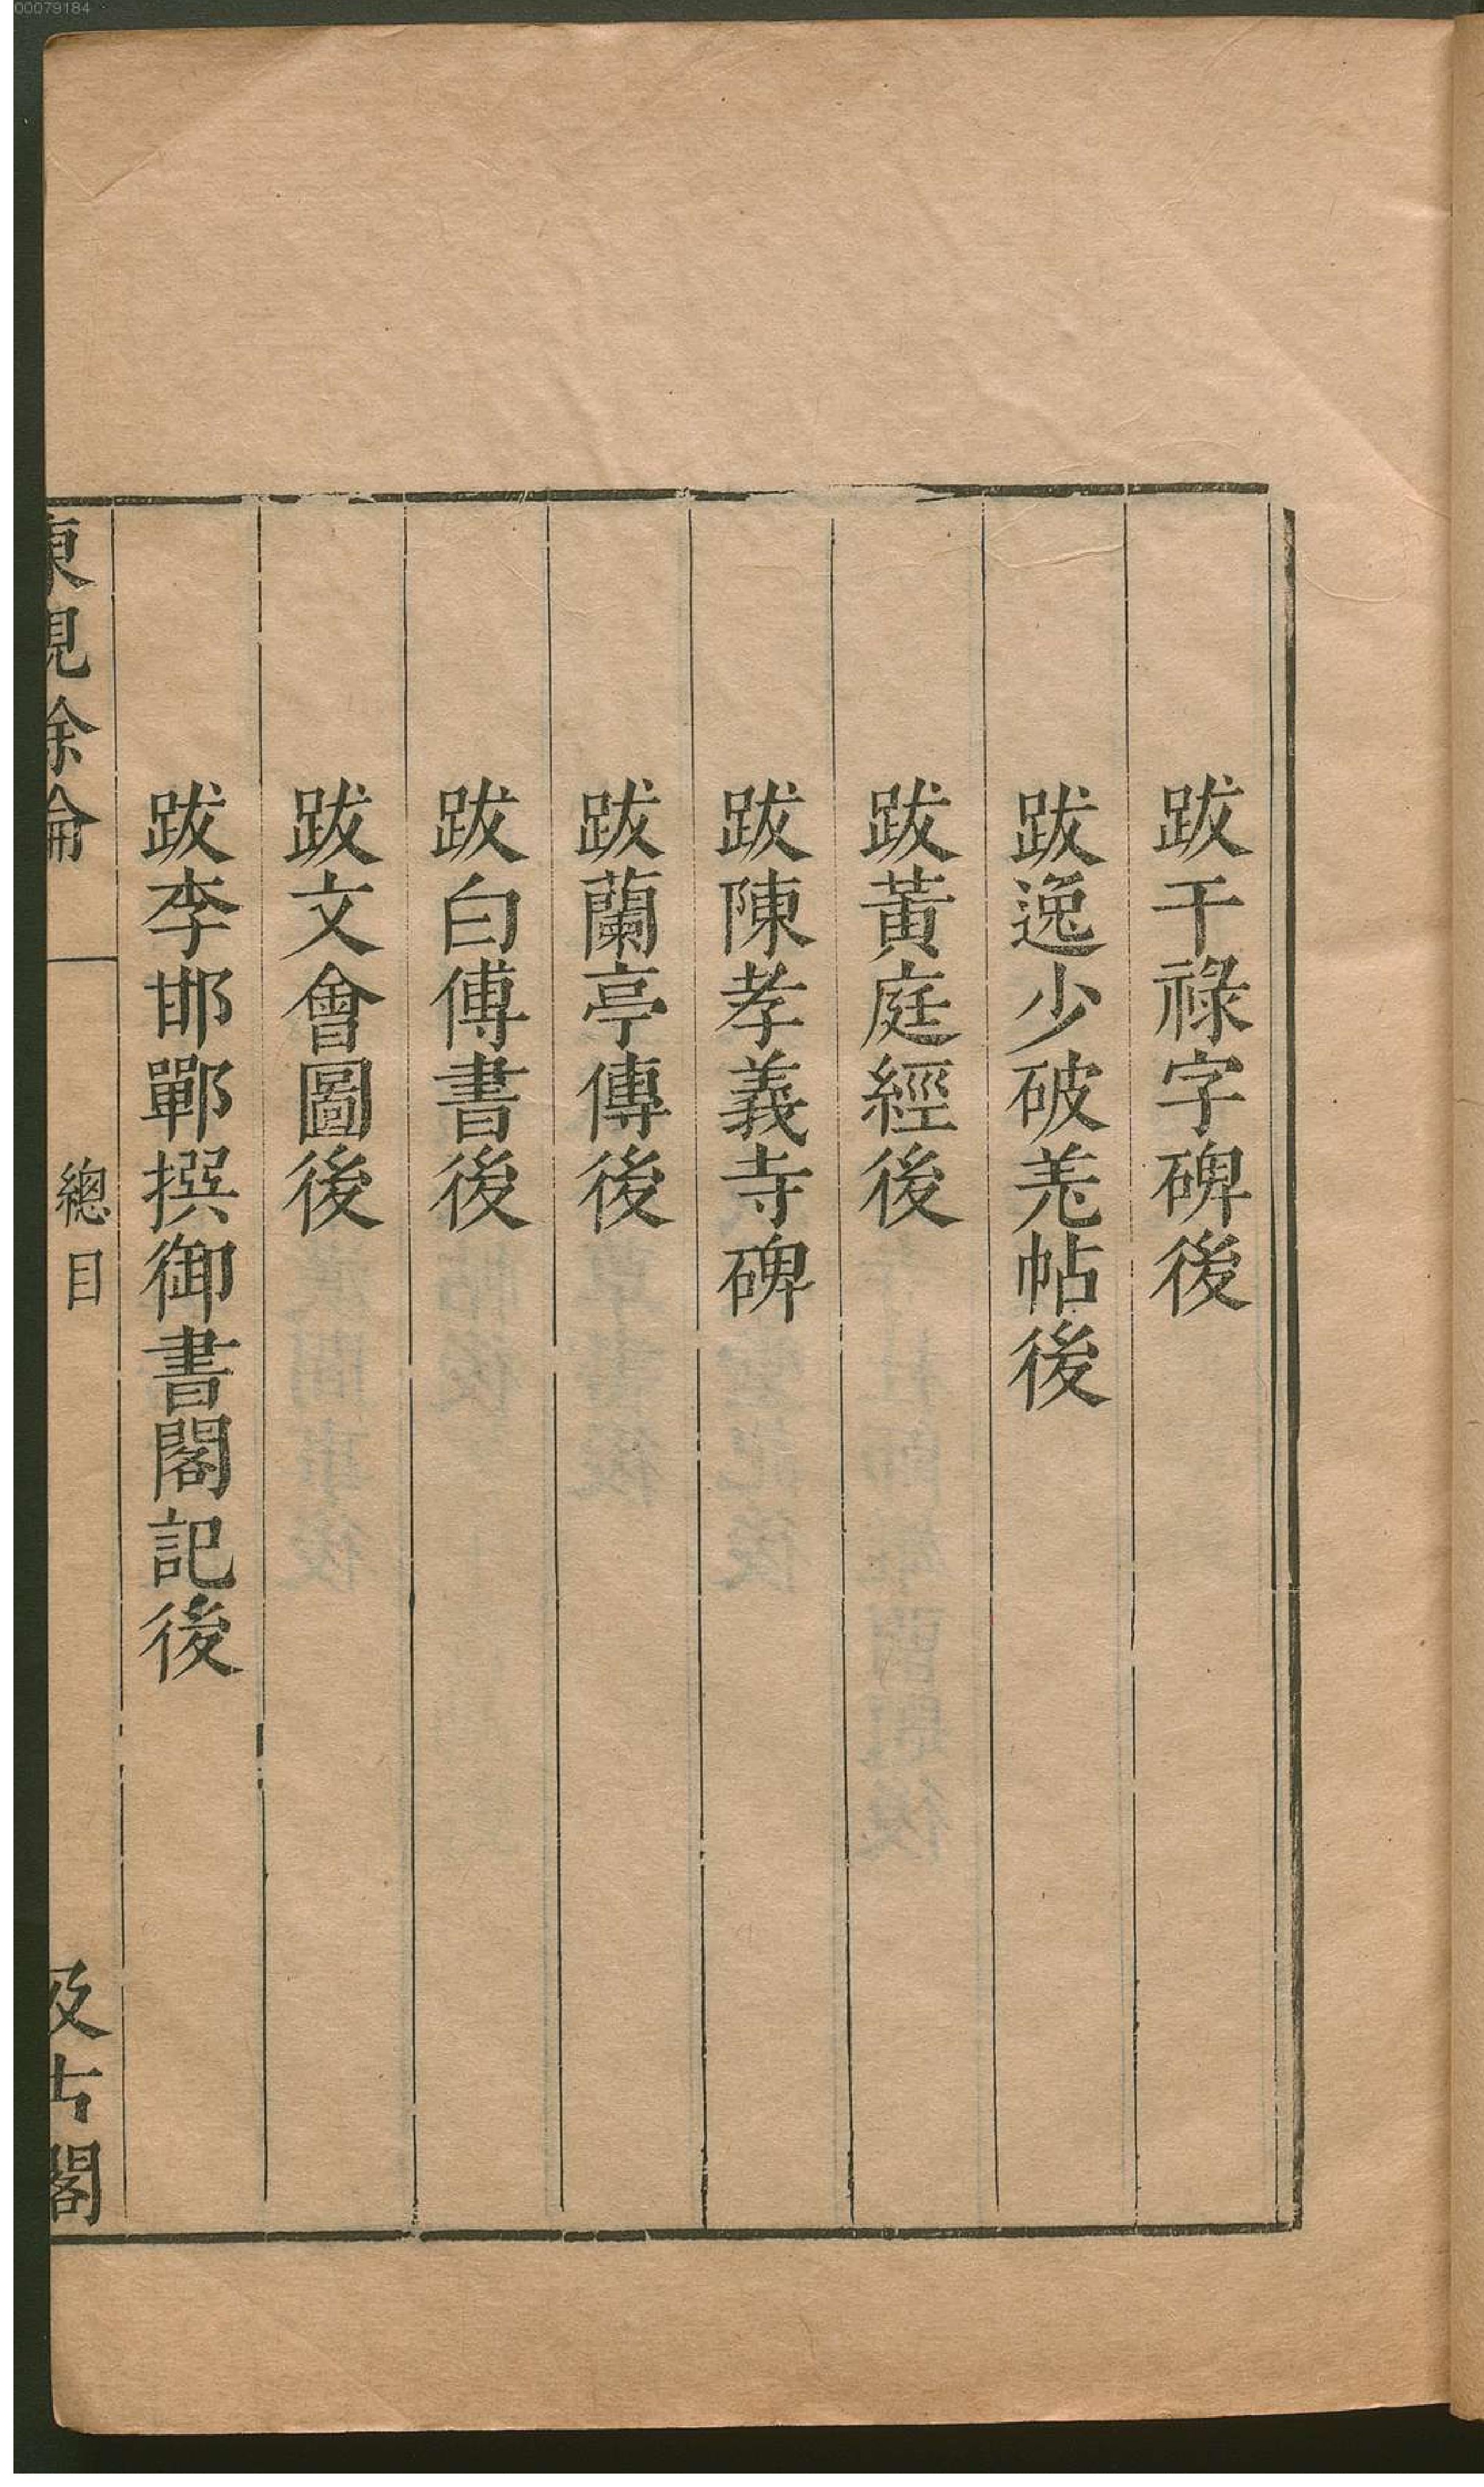 00079184
跋干祿字碑後
跋逸少破羗帖後
跋黃庭經後
跋陳孝義寺碑
跋蘭亭傳後
跋白傅書後
跋文會圖後
跋李邯鄲撰御書閣記後
東觀餘論
總目
汲古閣